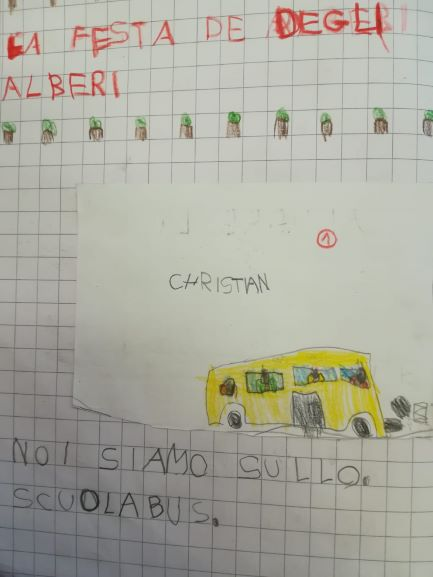 LA FESTA DE DEGLI
ALBERI
1
CHRISTIAN
NOI SIAMO SULLO.
SCUOLABUS.